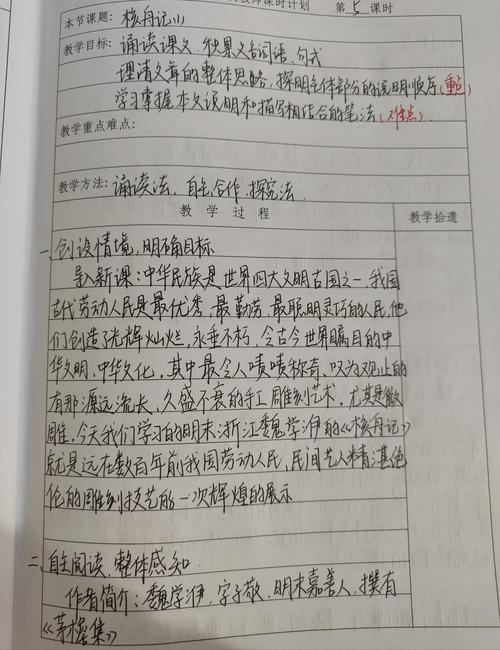 教师课时计划 第5课时
本节课题：核舟记(1)
教学目标：诵读课文，积累文言词语、句式
理清文章的整体思路，探明主体部分的说明顺序(重点)
学习掌握本文说明和描写相结合的笔法(难点)
教学重点难点：
教学方法：诵读法，自主合作探究法
教学过程 教学拾遗
一、创设情境，明确目标
导入新课：中华民族是世界四大文明古国之一，我国
古代劳动人民是最优秀，最勤劳，最聪明灵巧的人民，他
们创造了光辉灿烂，永垂不朽，令古今世界瞩目的中
华文明，中华文化，其中最令人啧啧称奇，叹为观止的
有那源远流长，久盛不衰的手工雕刻艺术，尤其是微
雕，今天我们学习的明末浙江魏学洢的《核舟记》
就是远在数百年前我国劳动人民，民间艺人精湛绝
伦的雕刻技艺的一次辉煌的展示
二、自主阅读，整体感知
作者简介：魏学洢，字子敬，明末嘉善人，撰有
《茅檐集》